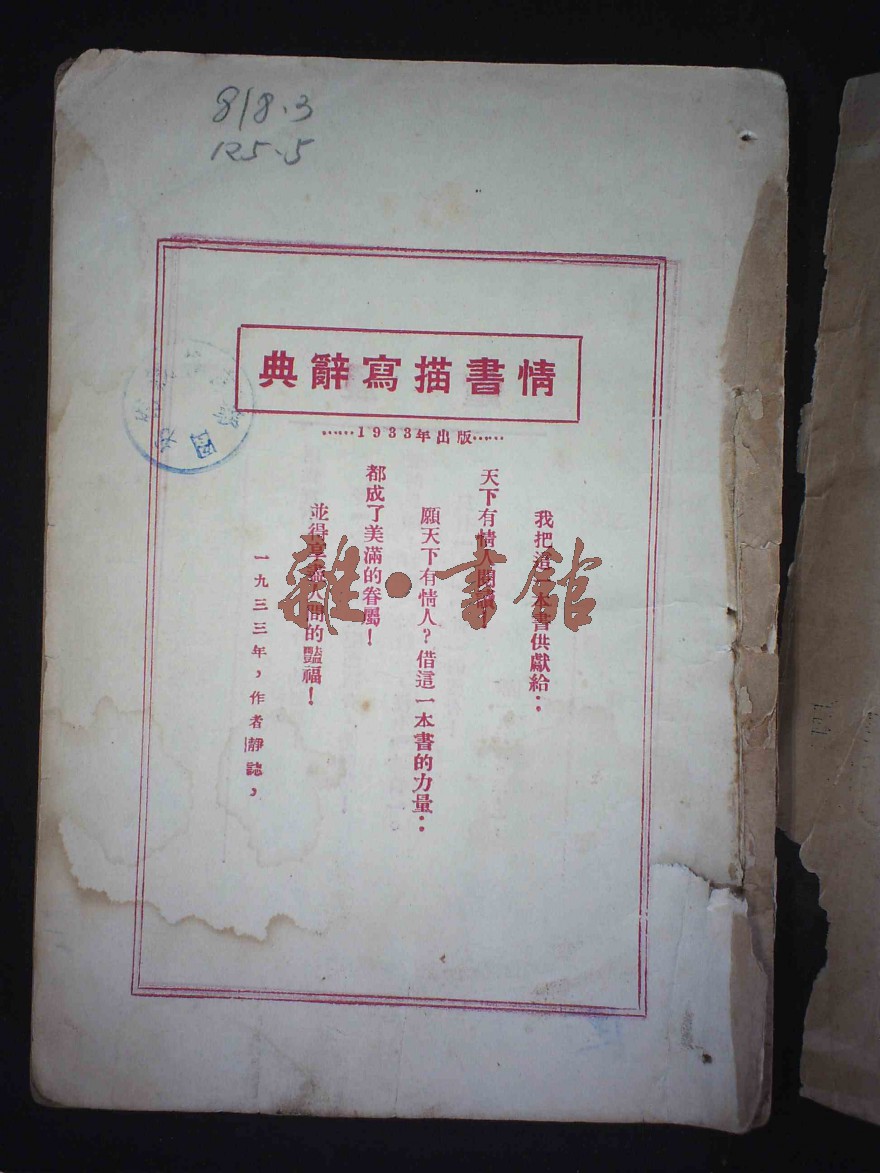 818.3
125.5
典辭寫描書情
……1933年出版……
我把這一本書供獻給：
天下有情人閱讀！
願天下有情人？借這一本書的力量：
都成了美滿的眷屬！
並得享盡人間的豔福！
一九三三年，作者靜誌，
雜·書館